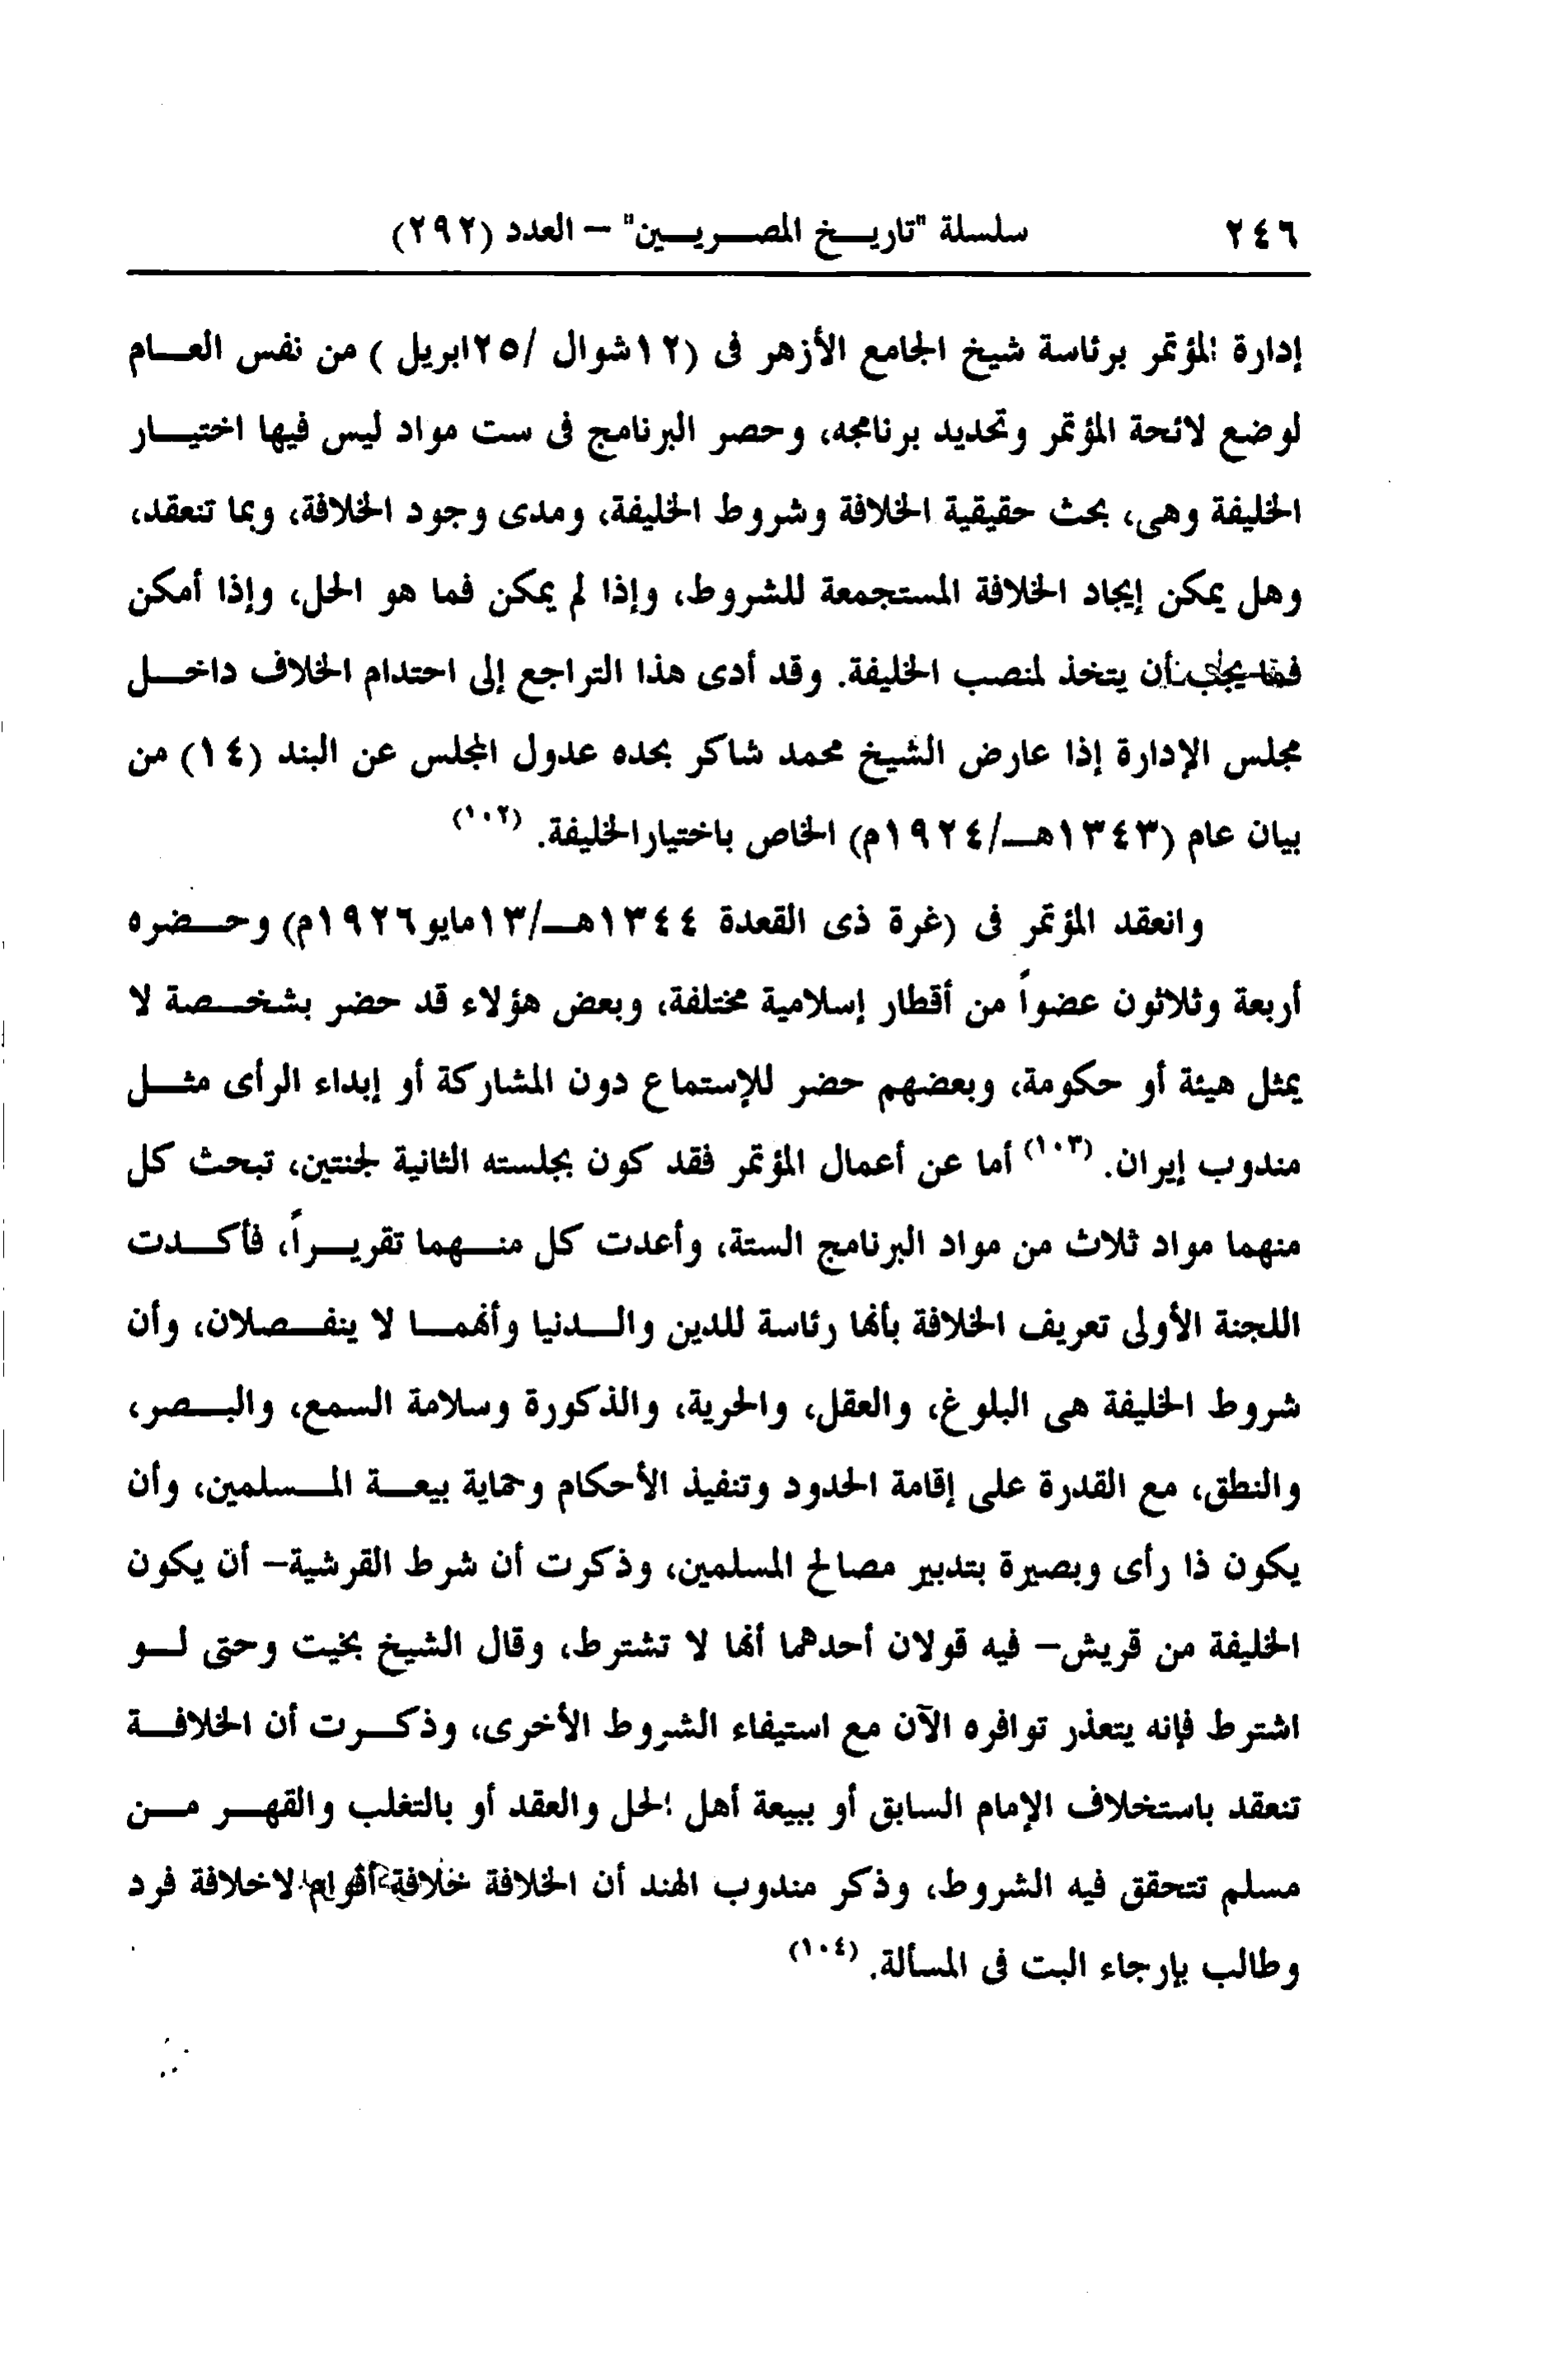 ٢٤٦ سلسلة "تاريخ المصريين" – العدد (٢٩٢)
إدارة المؤتمر برئاسة شيخ الجامع الأزهر فى (١٢شوال /٢٥ابريل ) من نفس العام
لوضع لائحة المؤتمر وتحديد برنامجه، وحصر البرنامج فى ست مواد ليس فيها اختيار
الخليفة وهى، بحث حقيقية الخلافة وشروط الخليفة، ومدى وجود الخلافة، وبما تنعقد،
وهل يمكن إيجاد الخلافة المستجمعة للشروط، وإذا لم يمكن فما هو الحل، وإذا أمكن
أن يتخذ لمنصب الخليفة. وقد أدى هذا التراجع إلى احتدام الخلاف داخل
مجلس الإدارة إذا عارض الشيخ محمد شاكر بحده عدول المجلس عن البند (١٤) من
بيان عام (١٣٤٣هـ/١٩٢٤م) الخاص باختيارالخليفة. (١٠٢)
وانعقد المؤتمر فى (غرة ذى القعدة ١٣٤٤هـ/١٣مايو١٩٢٦م) وحضره
أربعة وثلاثون عضواً من أقطار إسلامية مختلفة، وبعض هؤلاء قد حضر بشخصة لا
يمثل هيئة أو حكومة، وبعضهم حضر للإستماع دون المشاركة أو إبداء الرأى مثل
مندوب إيران. (١٠٣) أما عن أعمال المؤتمر فقد كون بجلسته الثانية لجنتين، تبحث كل
منهما مواد ثلاث من مواد البرنامج الستة، وأعدت كل منهما تقريراً، فأكدت
اللجنة الأولى تعريف الخلافة بأنها رئاسة للدين والدنيا وأنهما لا ينفصلان، وأن
شروط الخليفة هى البلوغ، والعقل، والحرية، والذكورة وسلامة السمع، والبصر،
والنطق، مع القدرة على إقامة الحدود وتنفيذ الأحكام وحماية بيعة المسلمين، وأن
يكون ذا رأى وبصيرة بتدبير مصالح المسلمين، وذكرت أن شرط القرشية– أن يكون
الخليفة من قريش– فيه قولان أحدهما أنها لا تشترط، وقال الشيخ بخيت وحتى لو
اشترط فإنه يتعذر توافره الآن مع استيفاء الشروط الأخرى، وذكرت أن الخلافة
تنعقد باستخلاف الإمام السابق أو ببيعة أهل الحل والعقد أو بالتغلب والقهر من
مسلم تتحقق فيه الشروط، وذكر مندوب الهند أن الخلافة خلافة أقوام لاخلافة فرد
وطالب بإرجاء البت فى المسألة. (١٠٤)